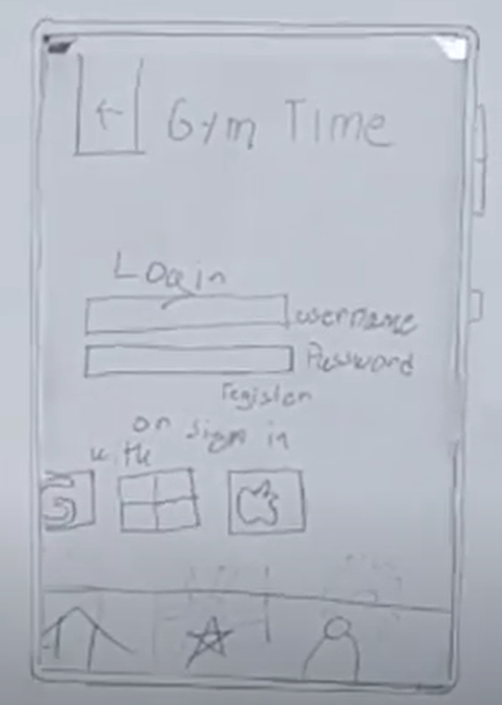 Gym Time
Login
username
Password
register
or sign in
with
G